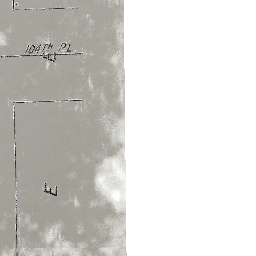 104TH PL
E